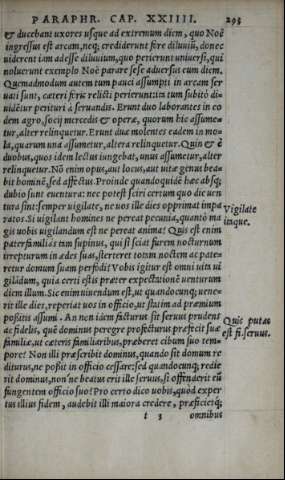 PARAPHR. CAP. XXIIII. 293
& ducebant uxores usque ad extremum diem, quo Noë
ingressus est arcam, neq; crediderunt fore diluuiũ, donec
uiderent iam adesse diluuium, quo perierunt uniuersi, qui
noluerunt exemplo Noë parare sese aduersus eum diem.
Quemadmodum autem tum pauci assumpti in arcam ser
uati sunt, cæteri foris relicti perierunt: ita tum subitò di-
uidẽtur perituri à seruandis. Erunt duo laborantes in eo
dem agro, socij mercedis & operæ, quorum hic assume-
tur, alter relinquetur. Erunt duæ molentes eadem in mo-
la, quarum una assumetur, altera relinquetur. Quin & è
duobus, quos idem lectus iungebat, unus assumetur, alter
relinquetur. Nõ enim opus, aut locus, aut uitæ genus bea-
bit hominẽ, sed affectus. Proinde quandoquidẽ hæc absq;
dubio sunt euentura: nec potest sciri certum quo die uen
tura sint: semper uigilate, ne uos ille dies opprimat impa
ratos. Si uigilant homines ne pereat pecunia, quantò ma
gis uobis uigilandum est ne pereat anima? Quis est enim
paterfamiliâs tam supinus, qui si sciat furem nocturnum
irrepturum in ædes suas, sterteret totam noctem ac pate-
retur domum suam perfodi? Vobis igitur est omni uita ui
gilãdum, quia certi estis præter expectationẽ uenturum
diem illum. Sic enim uniendum est, ut quandocunq; uene-
rit ille dies, reperiat uos in officio, ut statim ad præmium
possitis assumi. An non idem facturus sit seruus prudens
ac fidelis, quẽ dominus peregre profecturus præfecit suæ
familiæ, ut cæteris familiaribus, præberet cibum suo tem-
pore? Non illi præscribit dominus, quando sit domum re
diturus, ne possit in officio cessare: sed quandocunq; redie
rit dominus, non'ne beatus erit ille seruus, si offenderit eũ
fungentem officio suo? Pro certo dico uobis, quòd exper
tus illius fidem, audebit illi maiora credere, præficietq;
Vigilate
itaque.
Quis putas
est fi.seruus.
t 3 omnibus